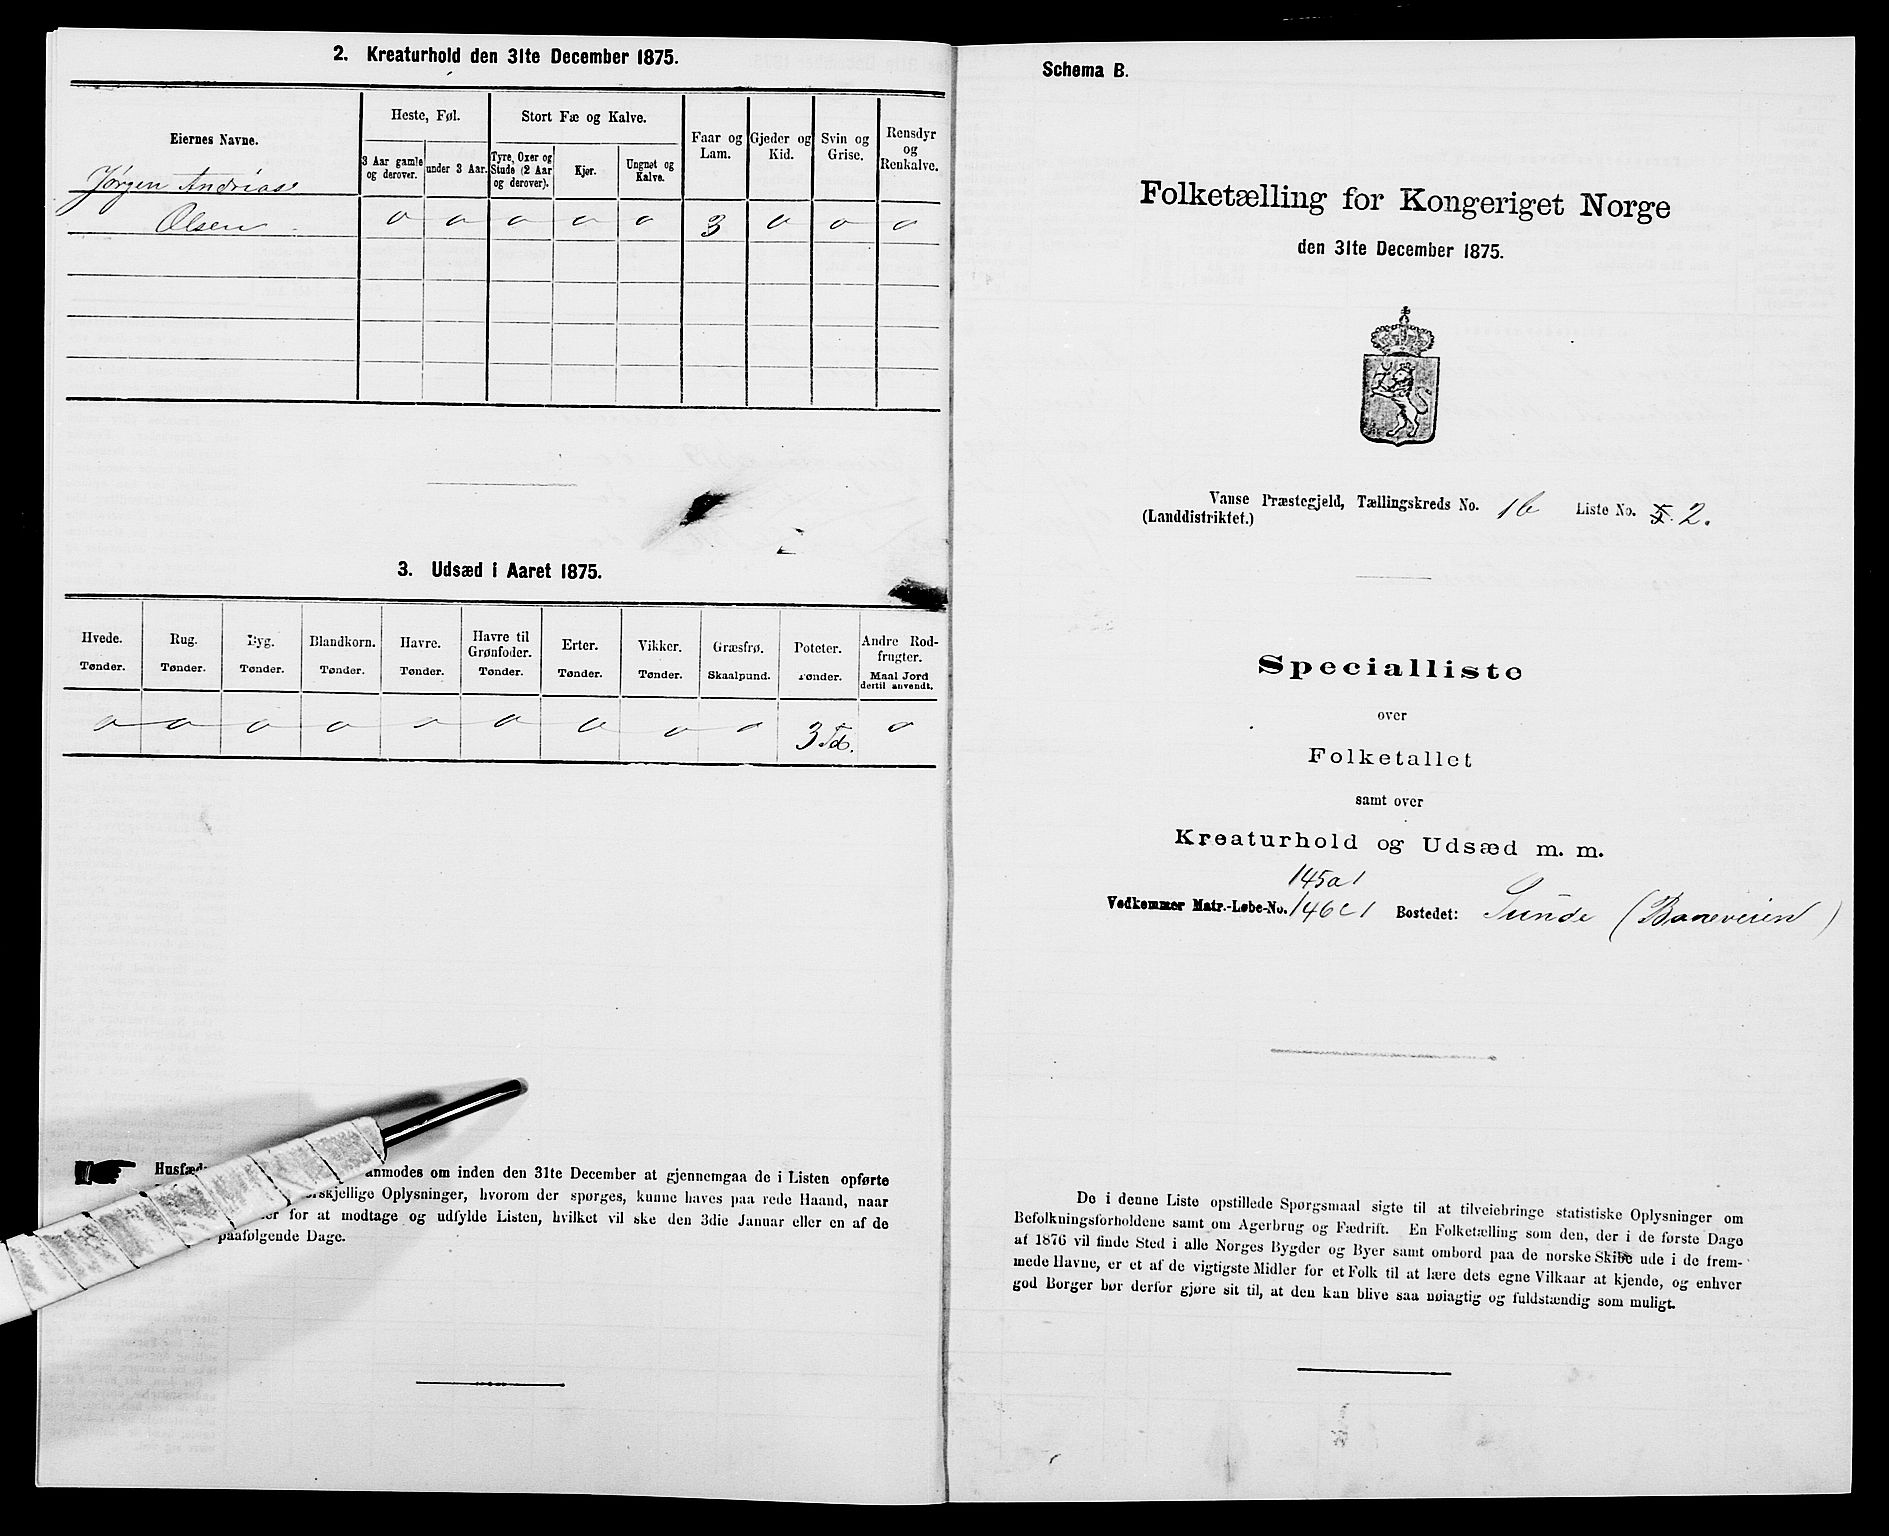 2. Kreaturhold den 31te December 1875.
Eiernes Navne.
Heste, Føl.
3 Aar gamle og derover.
under 3 Aar.
Stort Fæ og Kalve.
Tyre, Oxer og Stude (2 Aar og derover).
Kjør.
Ungnøt og Kalve.
Faar og Lam.
Gjeder og Kid.
Svin og Grise.
Rensdyr og Renkalve.
Jørgen Andreas
Olsen 0 0 0 0 0 3 0 0 0
3. Udsæd i Aaret 1875.
Hvede. Tønder.
Rug. Tønder.
Byg. Tønder.
Blandkorn. Tønder.
Havre. Tønder.
Havre til Grønfoder. Tønder.
Erter. Tønder.
Vikker. Tønder.
Græsfrø. Skaalpund.
Poteter. Tønder.
Andre Rodfrugter. Maal Jord dertil anvendt.
0 0 0 0 0 0 0 0 0 3 Td. 0
anmodes om inden den 31te December at gjennemgaa de i Listen opførte
Oplysninger, hvorom der spørges, kunne haves paa rede Haand, naar
for at modtage og udfylde Listen, hvilket vil ske den 3die Januar eller en af de
paafølgende Dage.
Schema B.
Folketælling for Kongeriget Norge
den 31te December 1875.
Vanse (Landdistriktet.) Præstegjeld, Tællingskreds No. 16 Liste No. 2.
Specialliste
over
Folketallet
samt over
Kreaturhold og Udsæd m. m.
145a1
Vedkommer Matr.-Løbe-No. 146c1 Bostedet: Sunde (Baneveien)
De i denne Liste opstillede Spørgsmaal sigte til at tilveiebringe statistiske Oplysninger om
Befolkningsforholdene samt om Agerbrug og Fædrift. En Folketælling som den, der i de første Dage
af 1876 vil finde Sted i alle Norges Bygder og Byer samt ombord paa de norske Skibe ude i de frem-
mede Havne, er et af de vigtigste Midler for et Folk til at lære dets egne Vilkaar at kjende, og enhver
god Borger bør derfor gjøre sit til, at den kan blive saa nøiagtig og fuldstændig som muligt.